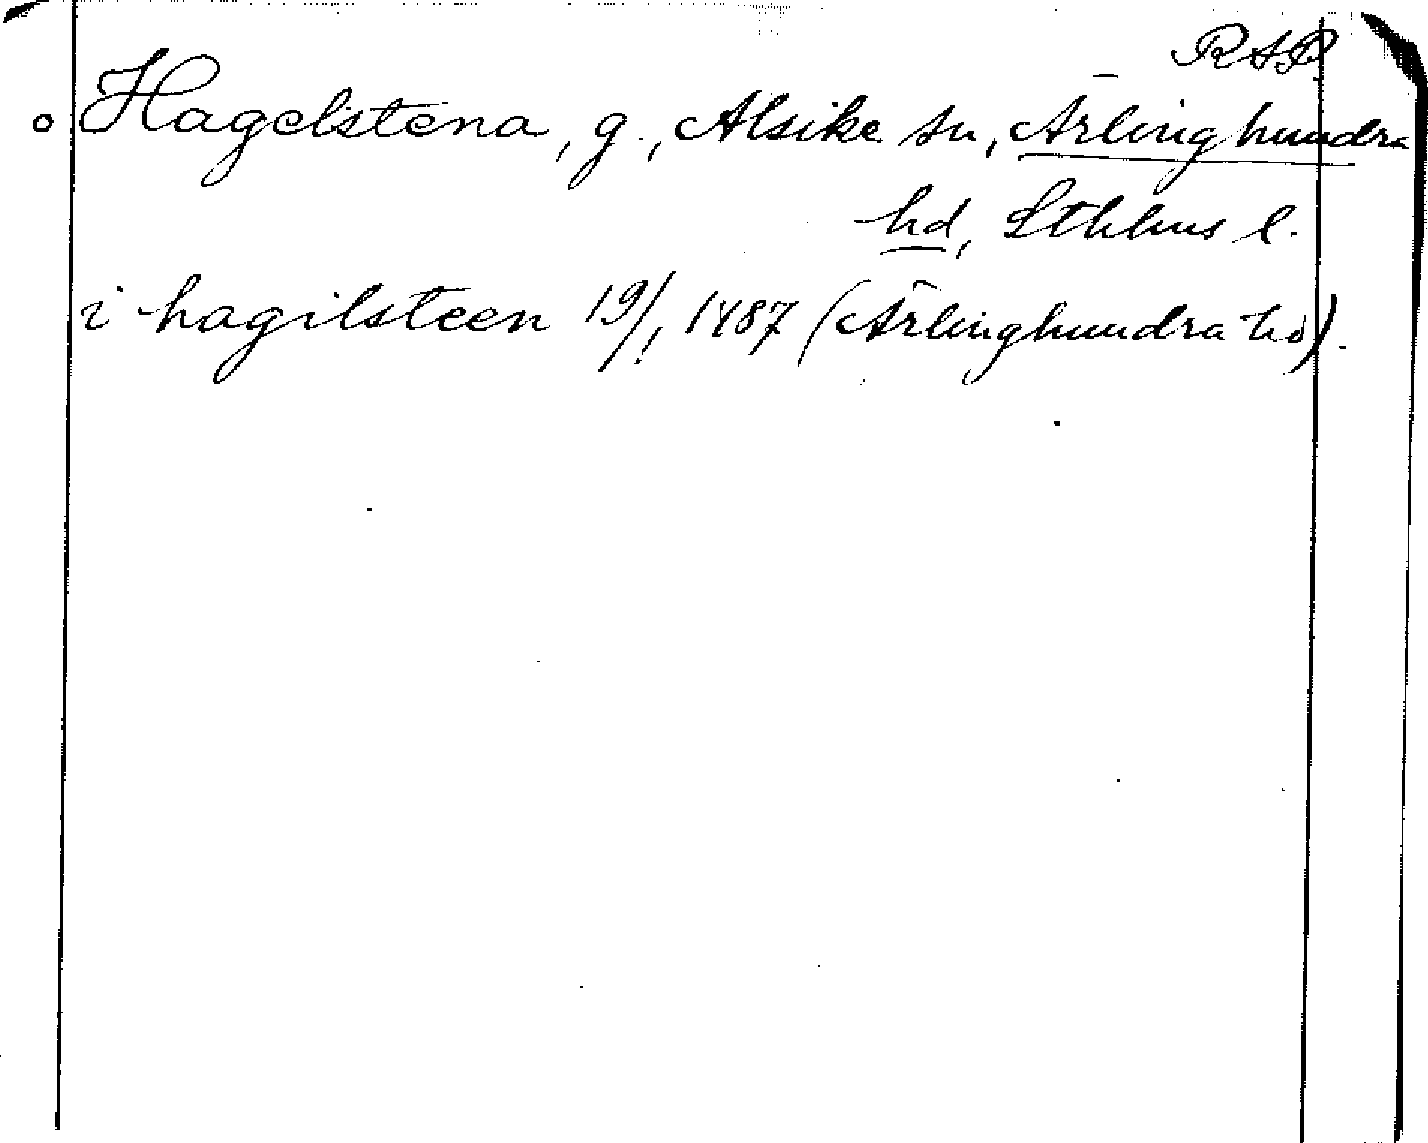 RAP.
o Hagelstena, g., Alsike sn, Ärlinghundra
hd, Sthlms l.
i hagilsteen 19/1 1487 (Ärlinghundra hd).